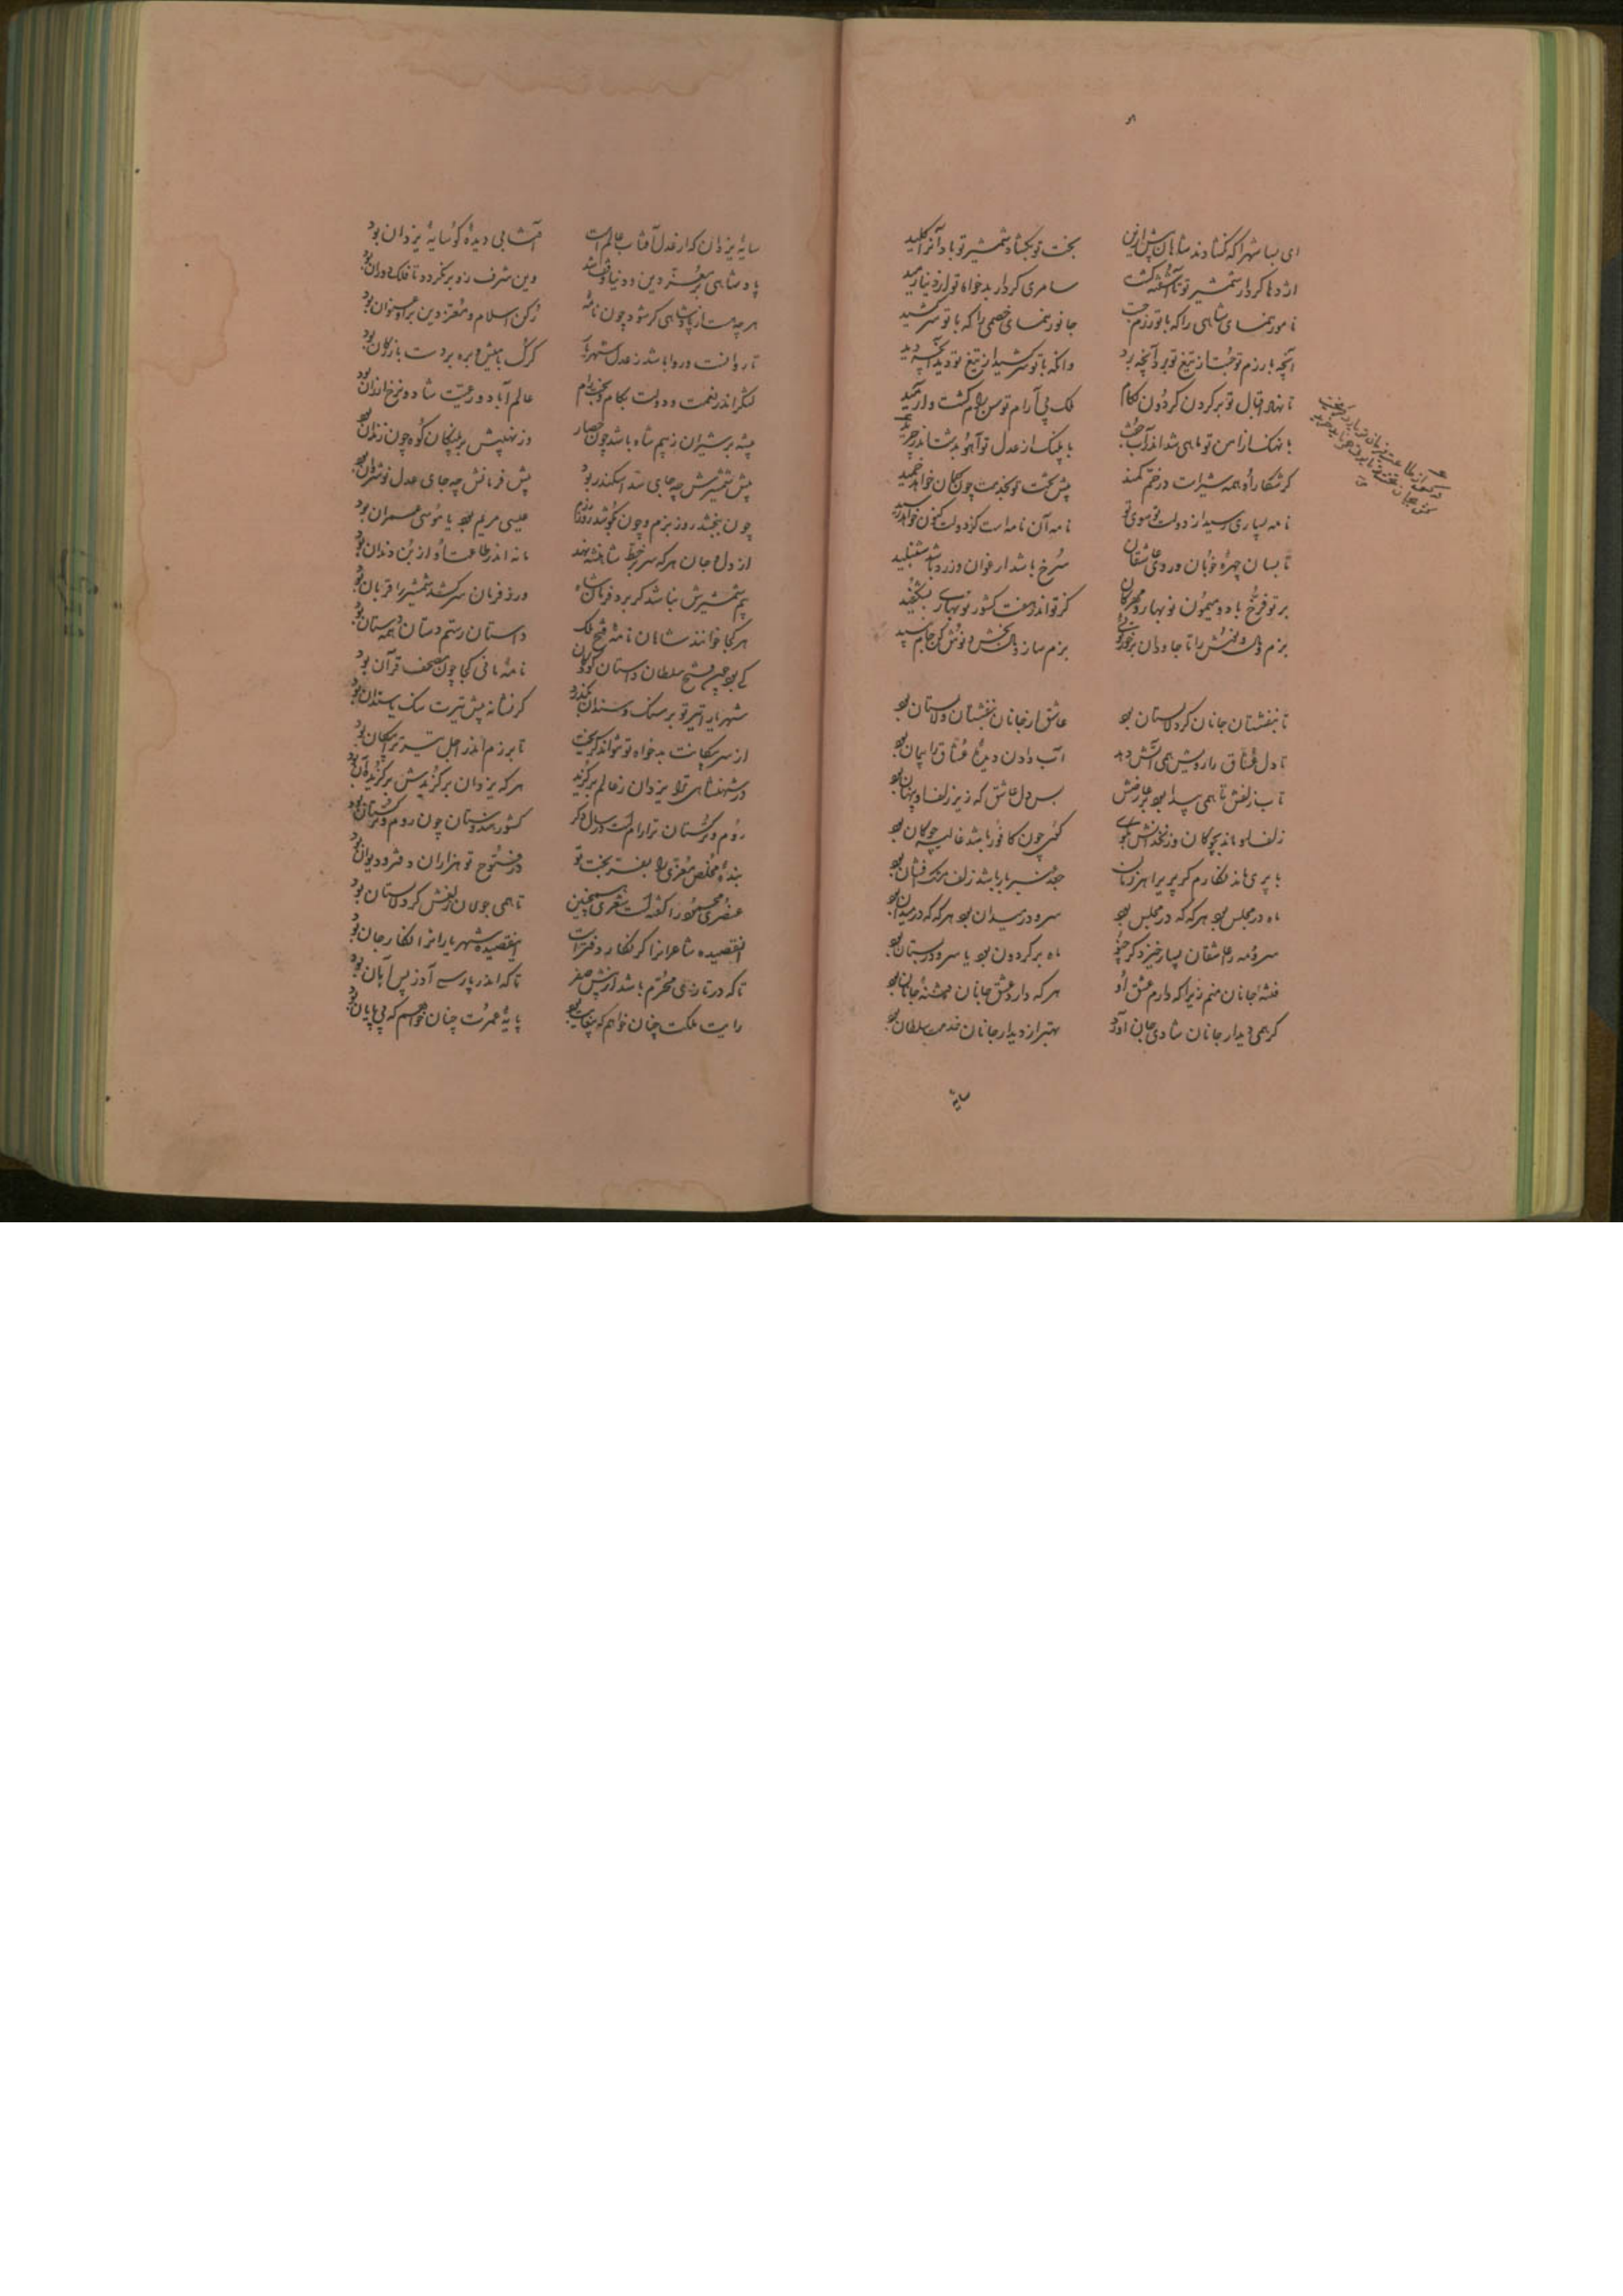 ای بسا شهرا که نگشادند شاهان پیش ازین بخت تو بگشاد و شمشیر تو باد آنرا کلید
اژدها کردار شمشیر تو تا آشفته گشت سامری کردار بدخواه تو از دنیا رمید
نامور بنمای شاهی را که با تو رزم جست جانور بنمای خصمی را که با تو سر کشید
آنچه با رزم تو جست از تیغ تو برد آنچه برد وانکه با تو سر کشید از تیغ تو دید آنچه دید
تا نهاد اقبال تو بر گردن گردون لگام فلک بی آرام توسن رام گشت و آرمید
با نهنگ از امن تو ماهی شد اندر آب خفت با پلنگ از عدل تو آهو بدشت اندر چرید
گر شکار او همه شیرانست در خم کمند پیش تخت تو بخدمت چون کمان خواهد خمید
نامه بسیاری رسید از دولت تو سوی تو نامه آن نامه است کز دولت کنون خواهد رسید
تا بسان چهرهٔ خوبان و روی عاشقان سرخ باشد ارغوان و زرد باشد شنبلید
بر تو فرخ باد و میمون نوبهار و مهرگان کز تو اندر هفت کشور نوبهاری بشکفید
بزم ساز و بخش و نوش کن جام نبید
تا بنفشستان جانان گرد لالستان بود عاشق از جانان بنفشستان و لالستان بود
تا دل عشاق را رویش همی آتش دهد آب دادن دیدهٔ عشاق را پیمان بود
تاب زلفش تا همی پیدا بود بر عارضش بس دل عاشق که زیر زلف او پنهان بود
زلف او ماند بچوگان و زنخدانش بگوی گوی چون کافور باشد غالیه چوگان بود
با پری ماند نگارم گر پری را هر زمان جعد عنبر بار باشد زلف مشک افشان بود
ماه در مجلس بود هر گه که در مجلس بود سرو در میدان بود هر گه که در میدان بود
سرو و مه را عاشقان بسیار خیزد گر چنو ماه بر گردون بود یا سرو در بستان بود
فتنهٔ جانان منم زیرا که دارم عشق او هر که دارد عشق جانان فتنهٔ جانان بود
گر همی دیدار جانان شادی جان آورد بهتر از دیدار جانان خدمت سلطان بود
سایهٔ
سایهٔ یزدان که از عدل آفتاب عالم است آفتابی دیدهٔ کو سایهٔ یزدان بود
پادشاهی بر معز دین و دنیا وقف شد وین شرف زو برنگردد تا فلک گردان بود
هر چه هست از پادشاهی گر شود چون نامهٔ رکن اسلام و معز دین بر او عنوان بود
تا روا گشت و روا باشد ز عدل شهریار گرگ با میش و بره بر دست بازرگان بود
لشکر اندر نعمت و دولت بکام و بخت رام عالم آباد و رعیت شاد و نرخ ارزان بود
بیشه بر شیران ز بیم شاه باشد چون حصار وز نهیبش بر پلنگان کوه چون زندان بود
پیش شمشیرش چه جای سد اسکندر بود پیش فرمانش چه جای عدل نوشروان بود
چون ببخشد روز بزم و چون بکوشد روز رزم عیسی مریم بود یا موسی عمران بود
از دل و جان هر که سر بر خط شاهنشه نهد مانه اندر طاعت او از بن دندان بود
بیم شمشیرش نباشد گر برد فرمان شاه ور ز فرمان سر کشد شمشیر را قربان بود
هر کجا خوانند شاهان نامهٔ فتح ملک داستان رستم دستان همه دستان بود
کی بود چون فتح سلطان داستان کودکان نامهٔ مانی کجا چون مصحف قرآن بود
شهریارا تیر تو بر سنگ و سندان بگذرد گر نشانه پیش تیرت سنگ یا سندان بود
از سر پیکانت بدخواه تو نتواند گریخت تا برزم اندر اجل تیر ترا پیکان بود
در شهنشاهی ترا یزدان ز عالم برگزید هر که یزدان برگزیدش برگزیده آن بود
روم و ترکستان ترا رام است و در سال دگر کشور هندوستان چون روم و ترکستان بود
بندهٔ مخلص معزی را بفر بخت تو در فتوح تو هزاران دفتر و دیوان بود
عنصری محمود را گفته است شعری همچنین تا همی جولان زلفش گرد لالستان بود
آن قصیده شاعرانرا گر نگار دفتر است این قصیده شهریارانرا نگار جان بود
تا که در تازی محرم باشد از پیش صفر تا که اندر پارسی آذر پس آبان بود
رایت ملکت چنان خواهم که بی غایت بود پایهٔ عمرت چنان خواهم که بی پایان بود